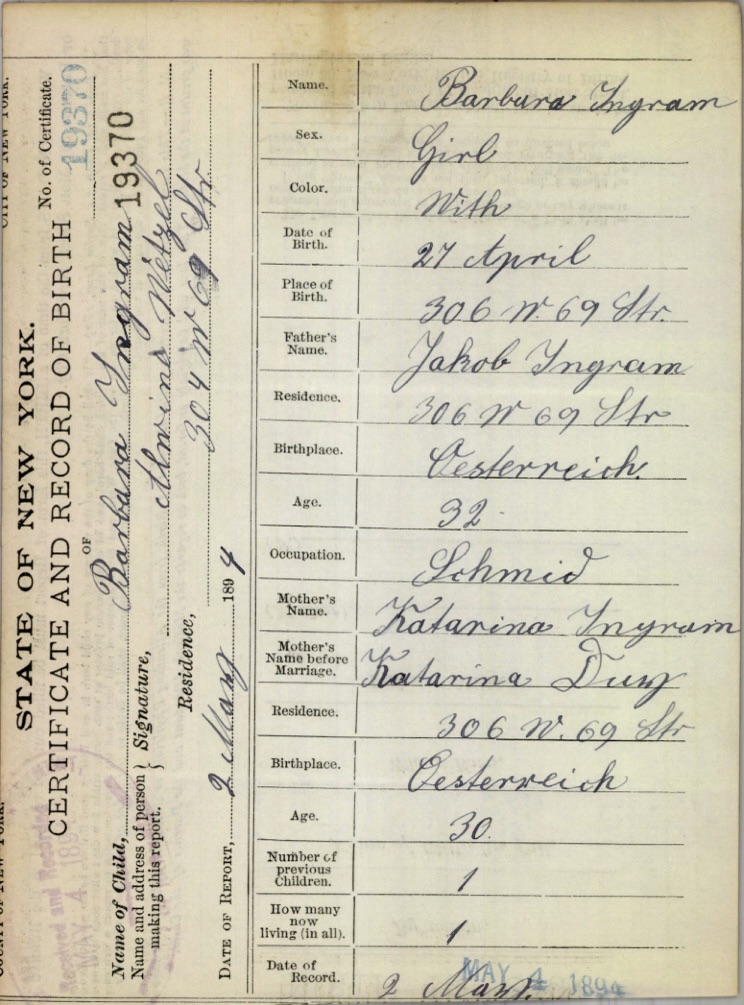 STATE OF NEW YORK.
CERTIFICATE AND RECORD OF BIRTH
No. of Certificate.
19370
OF
Name of Child, Barbara Yngram 19370
Name and address of person making this report. } Signature, Alwins Wetzel
Residence, 304 W 69 Str
DATE OF REPORT, 2 May 1894
Name. Barbara Ingram
Sex. Girl
Color. With
Date of Birth. 27 April
Place of Birth. 306 W. 69 Str.
Father's Name. Jakob Ingram
Residence. 306 W 69 Str
Birthplace. Oesterreich.
Age. 32
Occupation. Schmid
Mother's Name. Katarina Ingram
Mother's Name before Marriage. Katarina
Residence. 306 W. 69 Str
Birthplace. Oesterreich
Age. 30.
Number of previous Children. 1
How many now living (in all). 1
Date of Record. 2 May.
MAY 4 1894
Received and Recorded
MAY 4 189